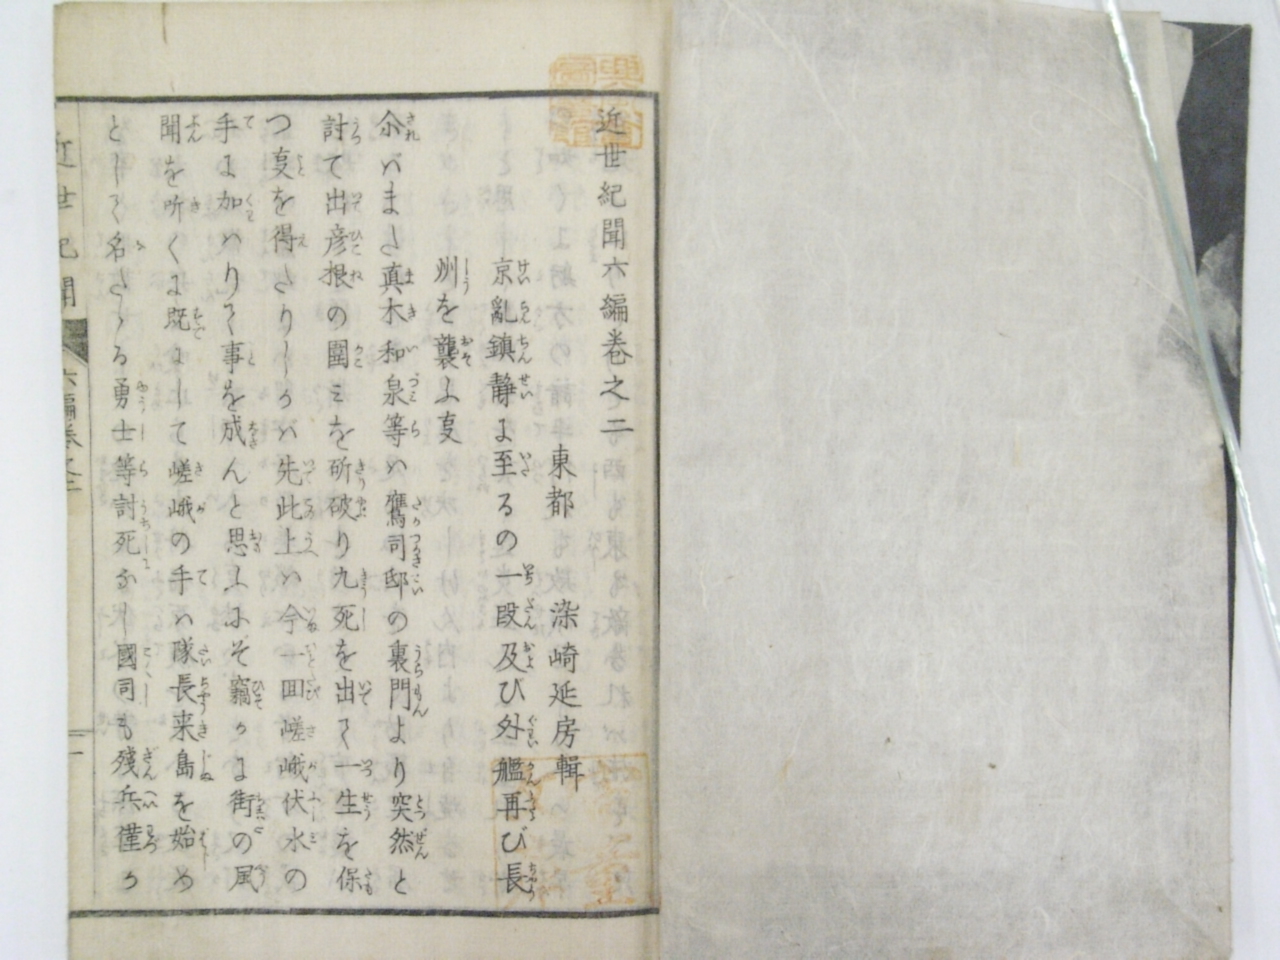 近世紀聞六編巻之二
東都 染崎延房輯
京亂鎮静に至るの一段及び外艦再び長
州を襲ふ㕝
尒ばまた真木和泉等ハ鷹司邸の裏門より突然と
討て出彦根の圍ミを斫破り九死を出て一生を保
つ㕝を得たりしかバ先此上ハ今一回嵯峨伏水の
手に加ハりて事を成んと思ふにぞ竊かに街の風
聞を听くに既にして嵯峨の手ハ隊長来島を始め
として名だゝる勇士等討死なし國司も殘兵僅か
近世紀聞 六編巻之二 一